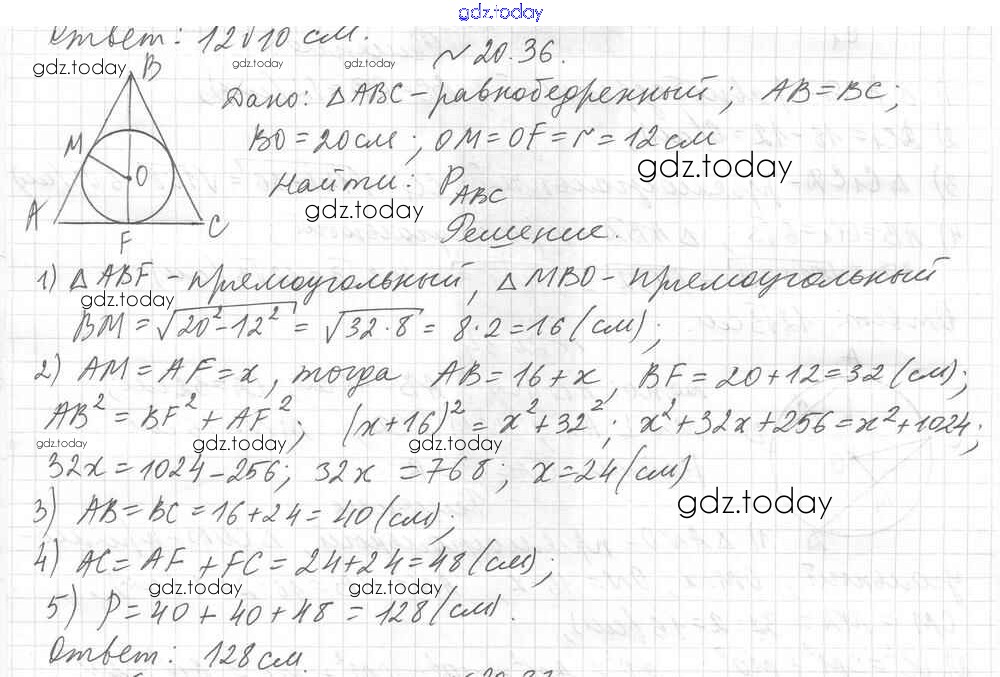 gdz.today
Ответ: 12√10 см.
№ 20.36.
gdz.today
gdz.today
gdz.today
B
M
O
A
F
C
Дано: △ABC - равнобедренный; AB = BC;
BO = 20 см; OM = OF = r = 12 см
gdz.today
Найти: P_ABC
gdz.today
Решение:
1) △ABF - прямоугольный, △MBO - прямоугольный
gdz.today
BM = √20² - 12² = √32·8 = 8·2 = 16 (см);
2) AM = AF = x, тогда AB = 16 + x, BF = 20 + 12 = 32 (см);
AB² = BF² + AF²; (x + 16)² = x² + 32²; x² + 32x + 256 = x² + 1024;
gdz.today
gdz.today
gdz.today
32x = 1024 - 256; 32x = 768; x = 24 (см)
gdz.today
3) AB = BC = 16 + 24 = 40 (см);
4) AC = AF + FC = 24 + 24 = 48 (см);
gdz.today
gdz.today
5) P = 40 + 40 + 48 = 128 (см).
Ответ: 128 см.